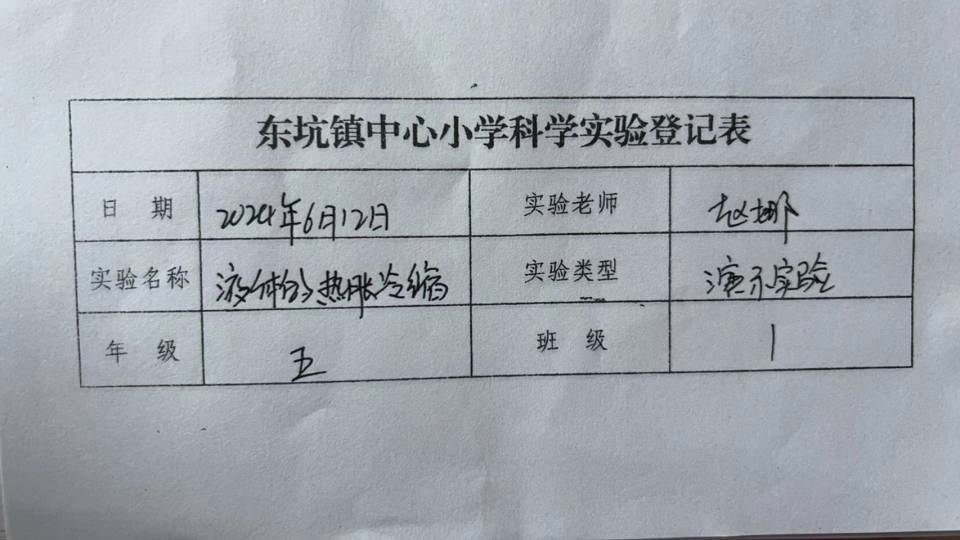 东坑镇中心小学科学实验登记表
日 期 2024年6月12日 实验老师 赵娜
实验名称 液体的热胀冷缩 实验类型 演示实验
年 级 五 班 级 1